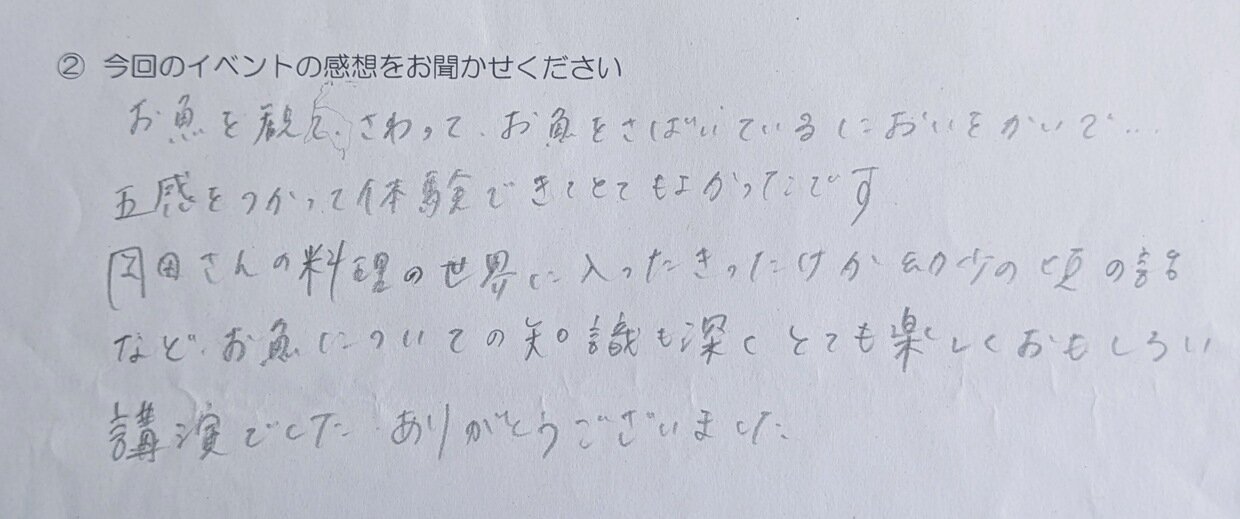 ② 今回のイベントの感想をお聞かせください
お魚を観て、さわって、お魚をさばいているにおいをかいで….
五感をつかって体験できてとてもよかったです
岡田さんの料理の世界に入ったきったけか幼少の頃の話
など、お魚についての知識も深くとても楽しくおもしろい
講演でした ありがとうございました